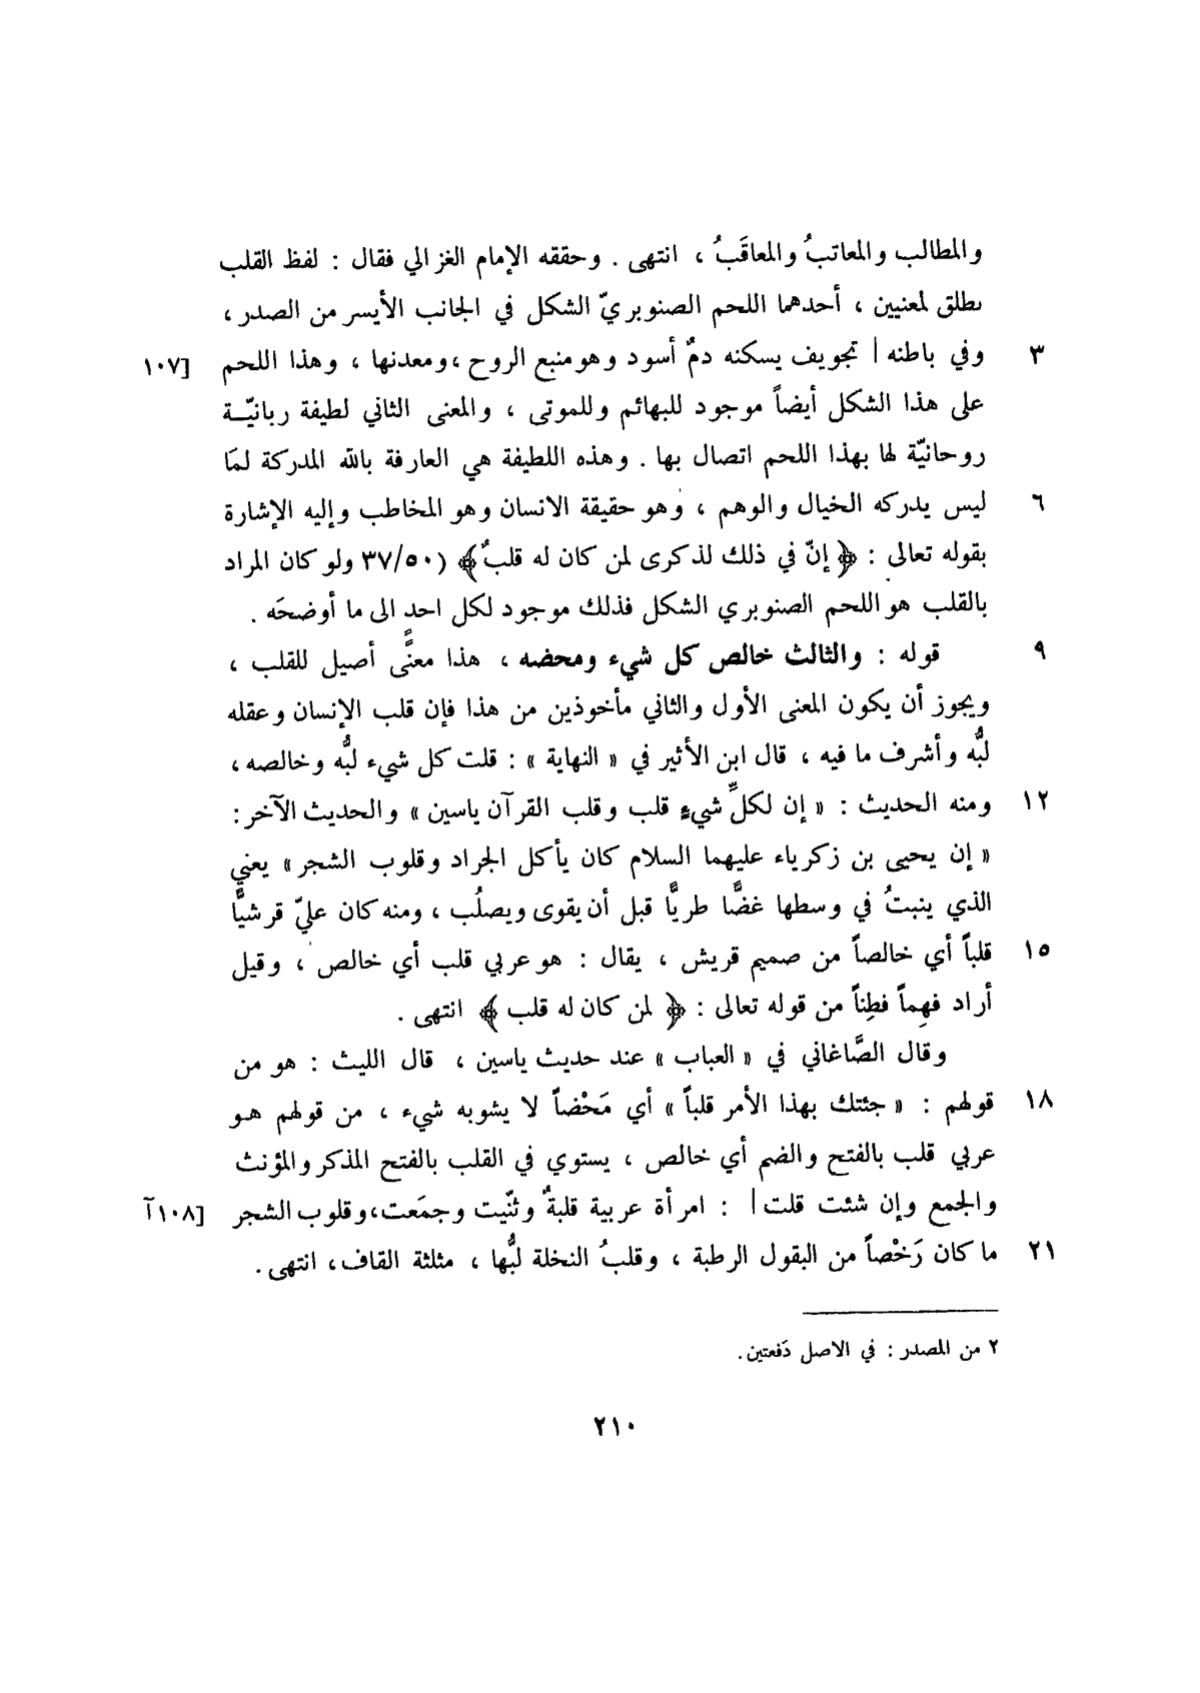 والمطالب والمعاتبُ والمعاقَبُ ، انتهى . وحققه الإمام الغزالي فقال : لفظ القلب
يطلق لمعنيين ، أحدهما اللحم الصنوبريّ الشكل في الجانب الأيسر من الصدر ،
٣ وفي باطنه | تجويف يسكنه دمٌ أسود وهو منبع الروح ، ومعدنها ، وهذا اللحم [١٠٧
على هذا الشكل أيضاً موجود للبهائم وللموتى ، والمعنى الثاني لطيفة ربانيّـة
روحانيّة لها بهذا اللحم اتصال بها . وهذه اللطيفة هي العارفة بالله المدركة لمَا
٦ ليس يدركه الخيال والوهم ، وهو حقيقة الانسان وهو المخاطب وإليه الإشارة
بقوله تعالى : ﴿ إنّ في ذلك لذكرى لمن كان له قلبٌ ﴾ (٣٧/٥٠ ولو كان المراد
بالقلب هو اللحم الصنوبري الشكل فذلك موجود لكل احدٍ الى ما أوضحَه .
٩ قوله : والثالث خالص كل شيء ومحضه ، هذا معنًّى أصيل للقلب ،
ويجوز أن يكون المعنى الأول والثاني مأخوذين من هذا فإن قلب الإنسان وعقله
لبُّه وأشرف ما فيه ، قال ابن الأثير في « النهاية » : قلت كل شيء لبُّه وخالصه ،
١٢ ومنه الحديث : « إن لكلِّ شيءٍ قلب وقلب القرآن ياسين » والحديث الآخر :
« إن يحيى بن زكرياء عليهما السلام كان يأكل الجراد وقلوب الشجر » يعني
الذي ينبتُ في وسطها غضًّا طريًّا قبل أن يقوى ويصلُب ، ومنه كان عليّ قرشيًّا
١٥ قلباً أي خالصاً من صميم قريش ، يقال : هو عربي قلب أي خالص ، وقيل
أراد فهِماً فطِناً من قوله تعالى : ﴿ لمن كان له قلب ﴾ انتهى .
وقال الصَّاغاني في « العباب » عند حديث ياسين ، قال الليث : هو من
١٨ قولهم : « جئتك بهذا الأمر قلباً » أي مَحْضاً لا يشوبه شيء ، من قولهم هـو
عربي قلب بالفتح والضم أي خالص ، يستوي في القلب بالفتح المذكر والمؤنث
والجمع وإن شئت قلت | : امرأة عربية قلبةٌ وثنّيت وجمَعت، وقلوب الشجر [١٠٨آ
٢١ ما كان رَخْصاً من البقول الرطبة ، وقلبُ النخلة لبُّها ، مثلثة القاف ، انتهى .
٢ من المصدر : في الاصل دَفعتين .
٢١٠